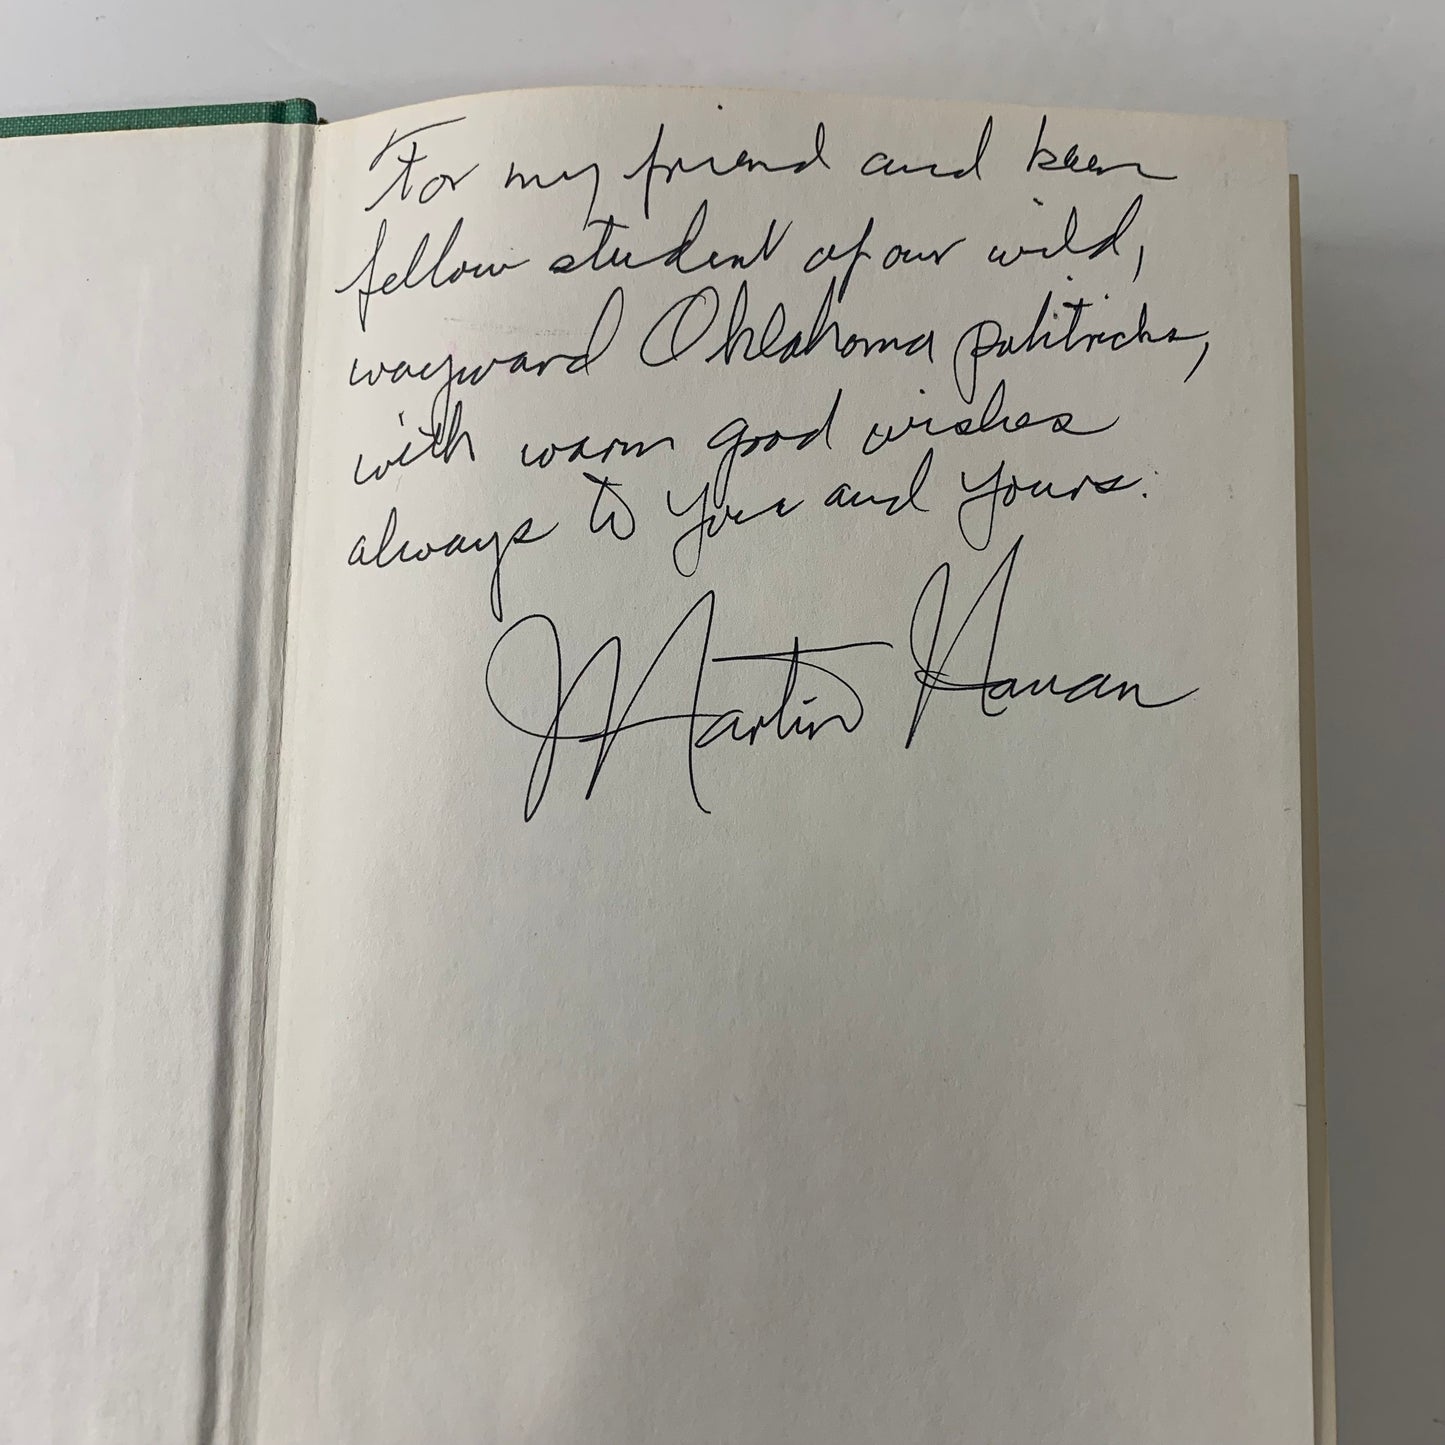 For my friend and keen
fellow student of our wild,
wayward Oklahoma politricks,
with warm good wishes
always to you and yours.
Martin Hauan